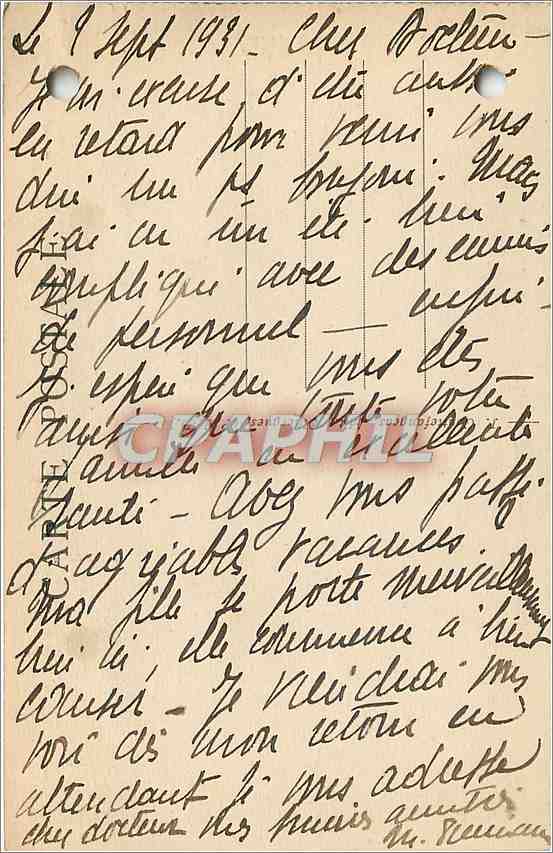 Le 9 Sept 1931 - Cher Docteur -
Je m'excuse d'être aussi
en retard pour venir vous
dire un ps bonjour. Mais
j'ai eu un été bien
compliqué avec des ennuis
de personnel — enfin
j'espère que vous êtes
ainsi que toute votre
famille en excellente
santé - Avez vous passé
d'agréables vacances.
ma fille se porte merveilleusement
bien ici, elle commence à bien
causer - Je viendrai vous
voir dès mon retour en
attendant je vous adresse
cher docteur mes amitiés
M.
CARTE POSTALE
CPAPHIL